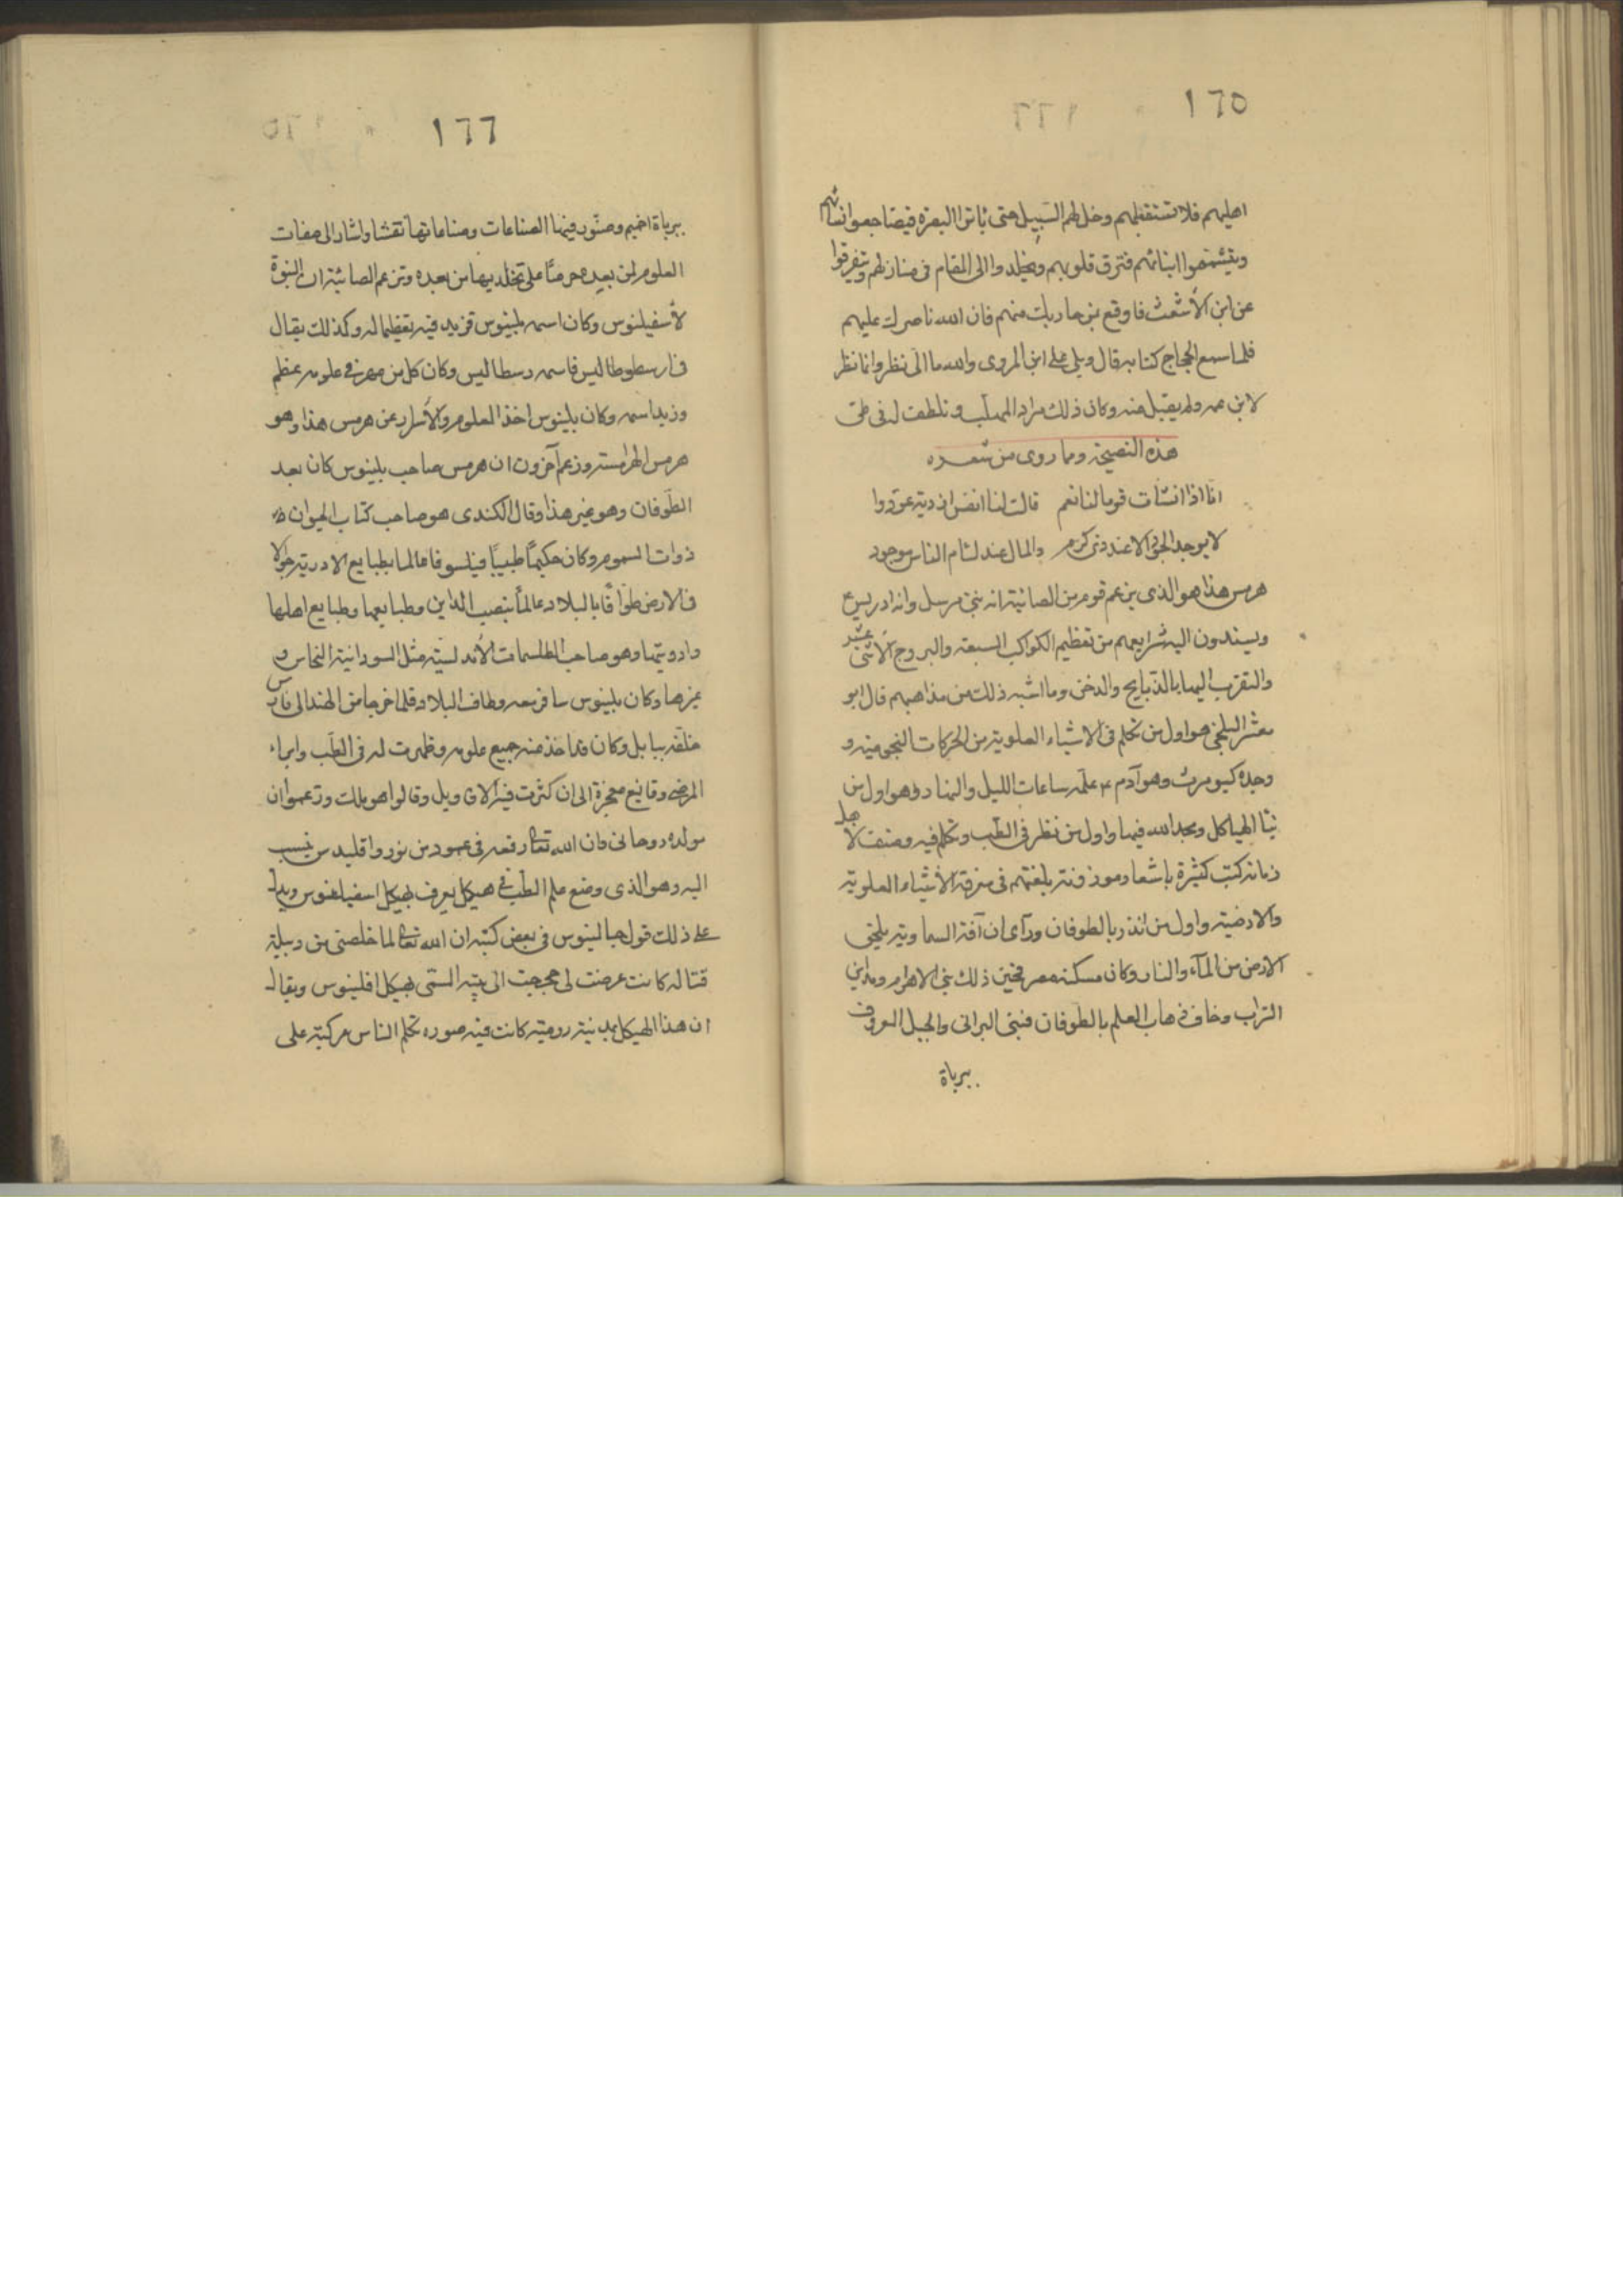 ١٦٥
اهليهم فلا تستقبلهم وخل لهم السبيل حتى ياتوا البصرة فيضاجعوا نسائهم
ويشتموا ابنائهم فترق قلوبهم ويخلدوا الى المقام فى منازلهم ويتفرقوا
عن ابن الأشعث فاوقع بمن حاربك منهم فان الله ناصرك عليهم
فلما سمع الحجاج كتابه قال ويلى على ابن المروى والله ما الىّ نظر وانما نظر
لابن عمه ولم يقبل منه وكان ذلك مراد المهلّب وتلطف له فى طى
هذه النصيحة ومما روى من شعره
انّا اذا انشأت قوما لنا نعم قالت لنا انفس ازدية عودوا
لا يوجد الجود الا عند ذى كرم والمال عند لئام الناس موجود
هرمس هذا هو الذى يزعم قوم من الصائبة انه نبى مرسل وانه ادريس ع
ويسندون اليه شرايعهم من تعظيم الكواكب السبعة والبروج الاثنى عشر
والتقرب اليها بالذبايح والدخن وما اشبه ذلك من مذاهبهم قال ابو
معشر البلخى هو اول من تكلم فى الاشياء العلوية من الحركات النجومية و
وجده كيومرث وهو آدم ع علّمه ساعات الليل والنهار وهو اول من
بنا الهياكل ومجد الله فيها واول من نظر فى الطب وتكلم فيه وصنف لاهل
زمانه كتب كثيرة باشعار موزونة بلغتهم فى معرفة الأشياء العلوية
والارضية واول من انذر بالطوفان ورآى ان آفة السماوية يلحق
الارض من المآء والنار وكان مسكنه مصر فحين ذلك بنى الاهرام ومداين
التراب وخاف ذهاب العلم بالطوفان فبنى البرانى والجبل المعروف
ببرباة
١٦٦
ببرباة اخميم وصوّر فيها الصناعات وصناعاتها نقشا واشار الى صفات
العلوم لمن بعده حرصًا على تخليدها من بعده وتزعم الصائبة ان النبوة
لأسفيلنوس وكان اسمه بلينوس فزيد فيه تعظيما له وكذلك يقال
فى ارسطوطاليس فاسمه رسطاليس وكان كل من مهر فى علومه عظم
وزيد اسمه وكان بلينوس اخذ العلوم والأسرار عن هرمس هذا وهو
هرمس الهرامسة وزعم آخرون ان هرمس صاحب بلينوس كان بعد
الطوفان وهو غير هذا وقال الكندى هو صاحب كتاب الحيوان
ذوات السموم وكان حكيمًا طبيبًا فيلسوفا عالما بطبايع الادوية جوالا
فى الارض طوافًا بالبلاد عالمًا بنصب المداين وطبايعها وطبايع اهلها
وادويتها وهو صاحب الطلسمات الأندلسية مثل السودانية النحاس و
غيرها وكان بلينوس سافر معه وطاف البلاد فلما خرجا من الهند الى فارس
خلّفه ببابل وكان قد اخذ منه جميع علومه وظهرت له فى الطب وابراء
المرضى وقايع معجزة الى ان كثرت فيه الاقاويل وقالوا هو ملك وزعموا ان
مولده روحانى فان الله تعالى رفعه فى عمود من نور واقليدس ينسب
اليه وهو الذى وضع علم الطب فى هيكل يعرف بهيكل اسفيلنوس ويدل
على ذلك قول جالينوس فى بعض كتبه ان الله تعالى لما خلصنى من دبيلة
قتالة كانت عرضت لى حججت الى بيته المسمّى بهيكل افلينوس ويقال
ان هذا الهيكل بمدينة رومية كانت فيه صوره تكلم الناس مركبة على